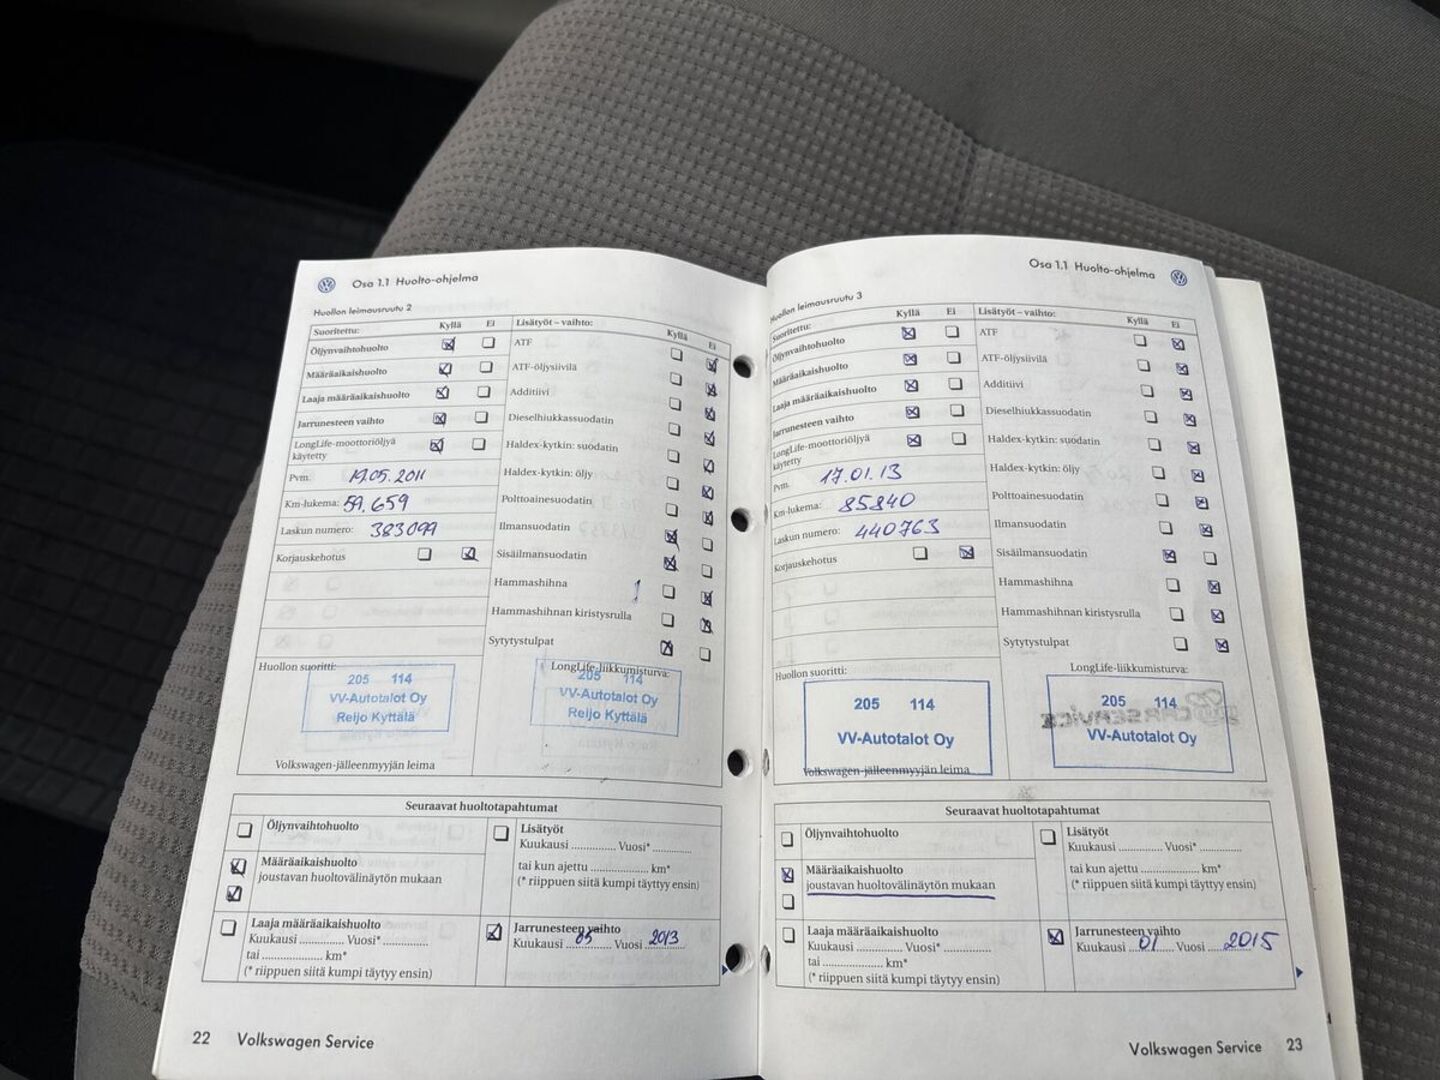 Osa 1.1 Huolto-ohjelma
Huollon leimausruutu 2
Suoritettu: Kyllä Ei
Öljynvaihtohuolto
Määräaikaishuolto
Laaja määräaikaishuolto
Jarrunesteen vaihto
LongLife-moottoriöljyä
käytetty
Pvm. 19.05.2011
Km-lukema: 59.659
Laskun numero: 383099
Korjauskehotus
Lisätyöt – vaihto: Kyllä Ei
ATF
ATF-öljysiivilä
Additiivi
Dieselhiukkassuodatin
Haldex-kytkin: suodatin
Haldex-kytkin: öljy
Polttoainesuodatin
Ilmansuodatin
Sisäilmansuodatin
Hammashihna
Hammashihnan kiristysrulla
Sytytystulpat
Huollon suoritti:
205 114
VV-Autotalot Oy
Reijo Kyttälä
Volkswagen-jälleenmyyjän leima
LongLife-liikkumisturva:
205 114
VV-Autotalot Oy
Reijo Kyttälä
Seuraavat huoltotapahtumat
Öljynvaihtohuolto
Määräaikaishuolto
joustavan huoltovälinäytön mukaan
Laaja määräaikaishuolto
Kuukausi .............. Vuosi* ..............
tai .................... km*
(* riippuen siitä kumpi täytyy ensin)
Lisätyöt
Kuukausi .............. Vuosi* ..............
tai kun ajettu .................... km*
(* riippuen siitä kumpi täyttyy ensin)
Jarrunesteen vaihto
Kuukausi 05 Vuosi 2013
22 Volkswagen Service
Osa 1.1 Huolto-ohjelma
Huollon leimausruutu 3
Suoritettu: Kyllä Ei
Öljynvaihtohuolto
Määräaikaishuolto
Laaja määräaikaishuolto
Jarrunesteen vaihto
LongLife-moottoriöljyä
käytetty
Pvm. 17.01.13
Km-lukema: 85840
Laskun numero: 440763
Korjauskehotus
Lisätyöt – vaihto: Kyllä Ei
ATF
ATF-öljysiivilä
Additiivi
Dieselhiukkassuodatin
Haldex-kytkin: suodatin
Haldex-kytkin: öljy
Polttoainesuodatin
Ilmansuodatin
Sisäilmansuodatin
Hammashihna
Hammashihnan kiristysrulla
Sytytystulpat
Huollon suoritti:
205 114
VV-Autotalot Oy
Volkswagen-jälleenmyyjän leima
LongLife-liikkumisturva:
205 114
VV-Autotalot Oy
Seuraavat huoltotapahtumat
Öljynvaihtohuolto
Määräaikaishuolto
joustavan huoltovälinäytön mukaan
Laaja määräaikaishuolto
Kuukausi .............. Vuosi* ..............
tai .................... km*
(* riippuen siitä kumpi täytyy ensin)
Lisätyöt
Kuukausi .............. Vuosi* ..............
tai kun ajettu .................... km*
(* riippuen siitä kumpi täyttyy ensin)
Jarrunesteen vaihto
Kuukausi 01 Vuosi 2015
Volkswagen Service 23